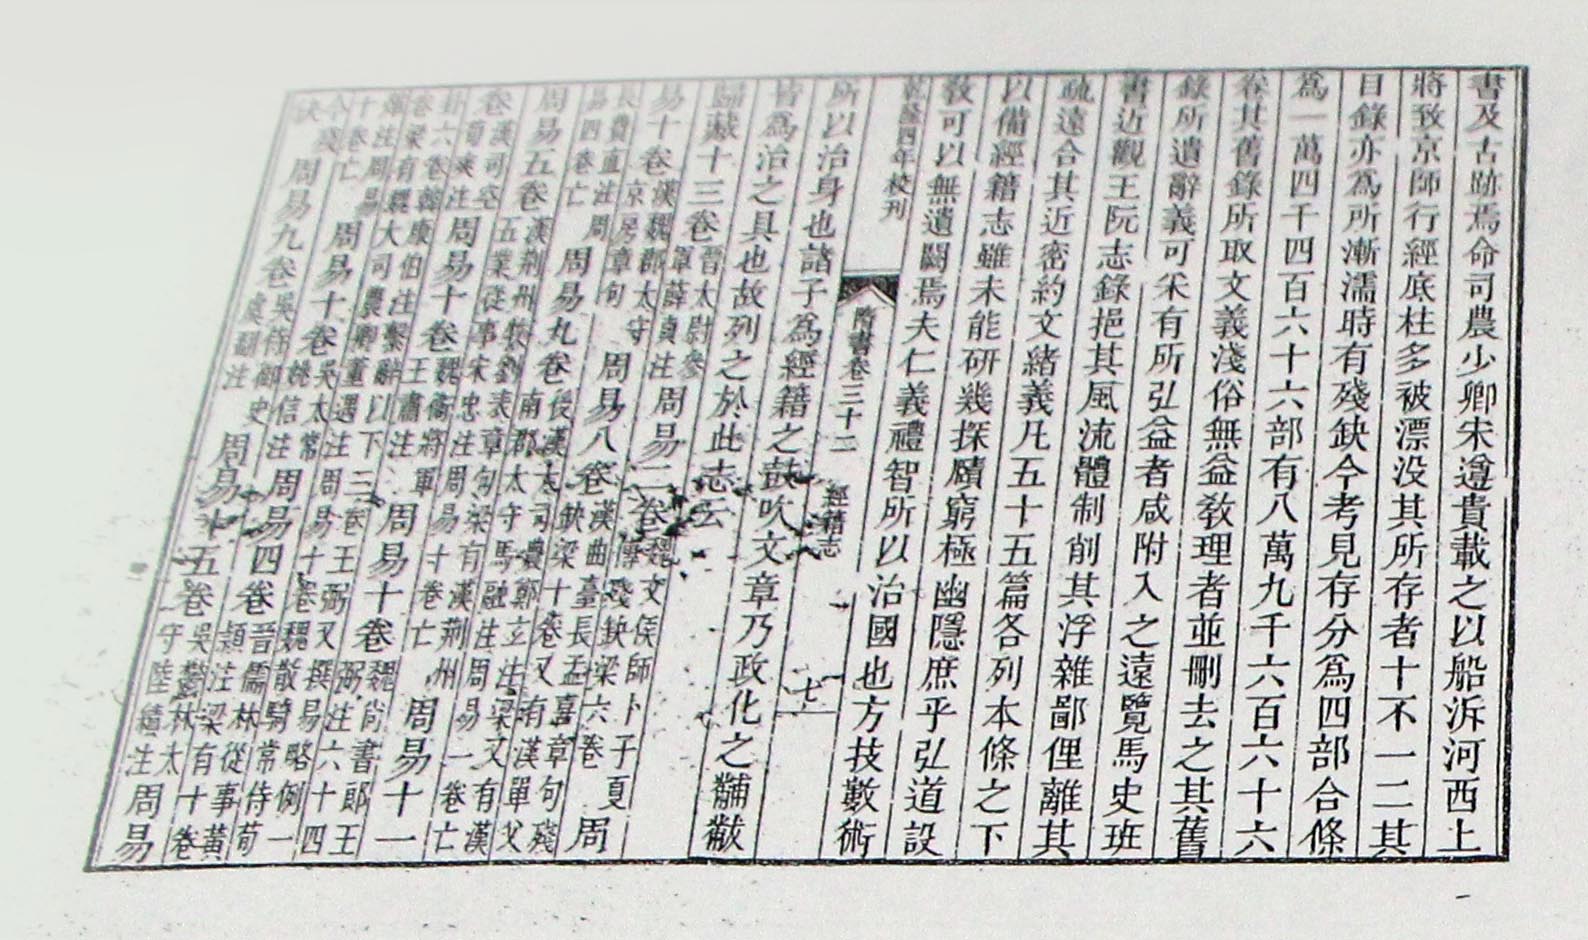 書及古跡焉命司農少卿宋遵貴載之以船泝河西上
將致京師行經底柱多被漂没其所存者十不一二其
目錄亦爲所漸濡時有殘缺今考見存分爲四部合條
爲一萬四千四百六十六部有八萬九千六百六十六
卷其舊錄所取文義淺俗無益敎理者並刪去之其舊
錄所遺辭義可采有所弘益者咸附入之遠覽馬史班
書近觀王阮志錄挹其風流體制削其浮雜鄙俚離其
疏遠合其近密約文緒義凡五十五篇各列本條之下
以備經籍志雖未能研幾探賾窮極幽隱庶乎弘道設
敎可以無遺闕焉夫仁義禮智所以治國也方技數術
乾隆四年校刊 隋書卷三十二 經籍志 七
所以治身也諸子爲經籍之鼓吹文章乃政化之黼黻
皆爲治之具也故列之於此志云
歸藏十三卷晉太尉參軍薛貞注 周易二卷魏文侯師卜子夏傳殘缺梁六卷 周
易十卷漢魏郡太守京房章句 周易八卷漢曲臺長孟喜章句殘缺梁十卷又有漢單父
長費直注周易四卷亡 周易九卷後漢大司農鄭玄注梁又有漢南郡太守馬融注周易一卷亡
周易五卷漢荆州牧劉表章句梁有漢荆州五業從事宋忠注周易十卷亡 周易十一
卷漢司空荀爽注 周易十卷魏衞將軍王肅注 周易十卷魏尚書郎王弼注六十四
卦六卷韓康伯注繫辭以下三卷王弼又撰易略例一卷梁有魏大司農卿董遇注周易十卷魏散騎常侍荀
煇注周易十卷亡 周易十卷吳太常姚信注 周易四卷晉儒林從事黃穎注梁有十卷
今殘缺 周易九卷吳侍御史虞翻注 周易十五卷吳鬱林太守陸績注 周易